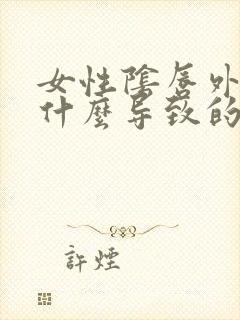 女性陰唇外
什麼导致的
許煙